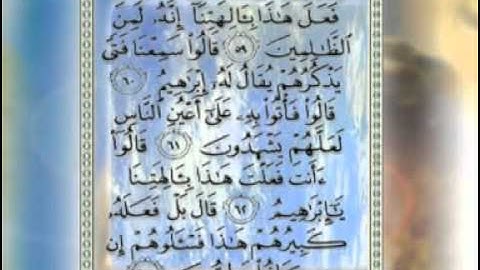 فَعَلَ هَٰذَا بِـَٔالِهَتِنَآ إِنَّهُۥ لَمِنَ
ٱلظَّٰلِمِينَ ٥٩ قَالُوا۟ سَمِعْنَا فَتًى
يَذْكُرُهُمْ يُقَالُ لَهُۥٓ إِبْرَٰهِيمُ ٦٠
قَالُوا۟ فَأْتُوا۟ بِهِۦ عَلَىٰٓ أَعْيُنِ ٱلنَّاسِ
لَعَلَّهُمْ يَشْهَدُونَ ٦١ قَالُوٓا۟
ءَأَنتَ فَعَلْتَ هَٰذَا بِـَٔالِهَتِنَا
يَٰٓإِبْرَٰهِيمُ ٦٢ قَالَ بَلْ فَعَلَهُۥ
كَبِيرُهُمْ هَٰذَا فَسْـَٔلُوهُمْ إِن